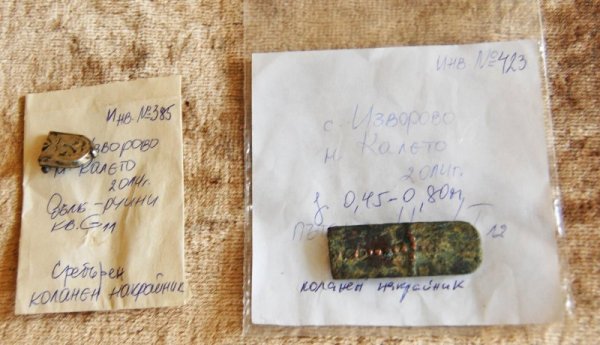 Инв. №385
Изворово
м. Калето
2014г.
Дълб - руини
кв. Gm
Сребърен
коланен накрайник
Инв №423
с. Изворово
м. Калето
2014г.
0,45-0,80м
12
коланен накрайник